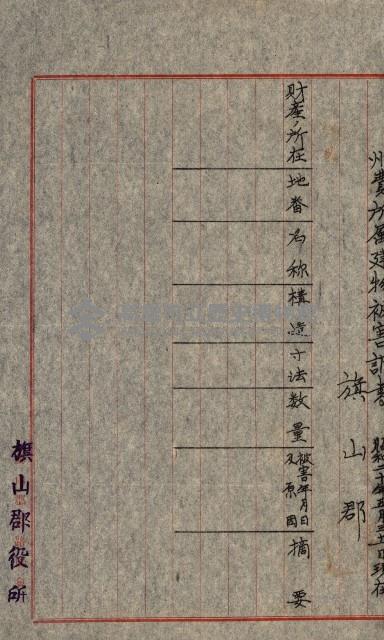 州費所屬建物被害調書 昭和二十年五月三十一日現在
旗山郡
財產ノ所在 地番 名称 構造 寸法 数量 被害年月日及原因 摘要
旗山郡役所